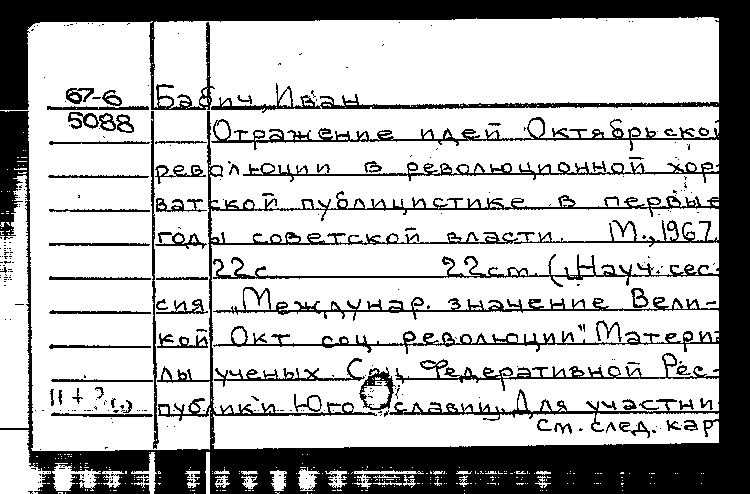 67-6 Бабич, Иван
5088 Отражение идей Октябрьской
революции в революционной хор-
ватской публицистике в первые
годы советской власти. М., 1967.
22с 22см. (Науч. сес-
сия „Междунар. значение Вели-
кой Окт соц. революции". Материа
лы ученых Соц. Федеративной Рес-
публики Югославии. Для участни
см. след. кар